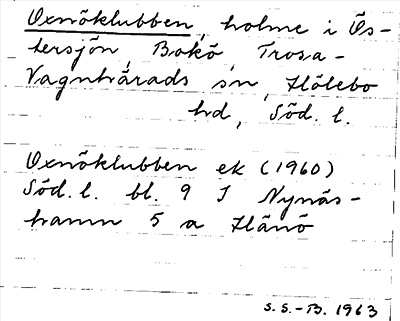 Oxnöklubben, holme i Ös-
tersjön, Bokö, Trosa-
Vagnhärads sn, Hölebo
hd, Söd. l.
Oxnöklubben ek (1960)
Söd. l. bl. 9 I Nynäs-
hamn 5 a Hånö
S.S.-B. 1963